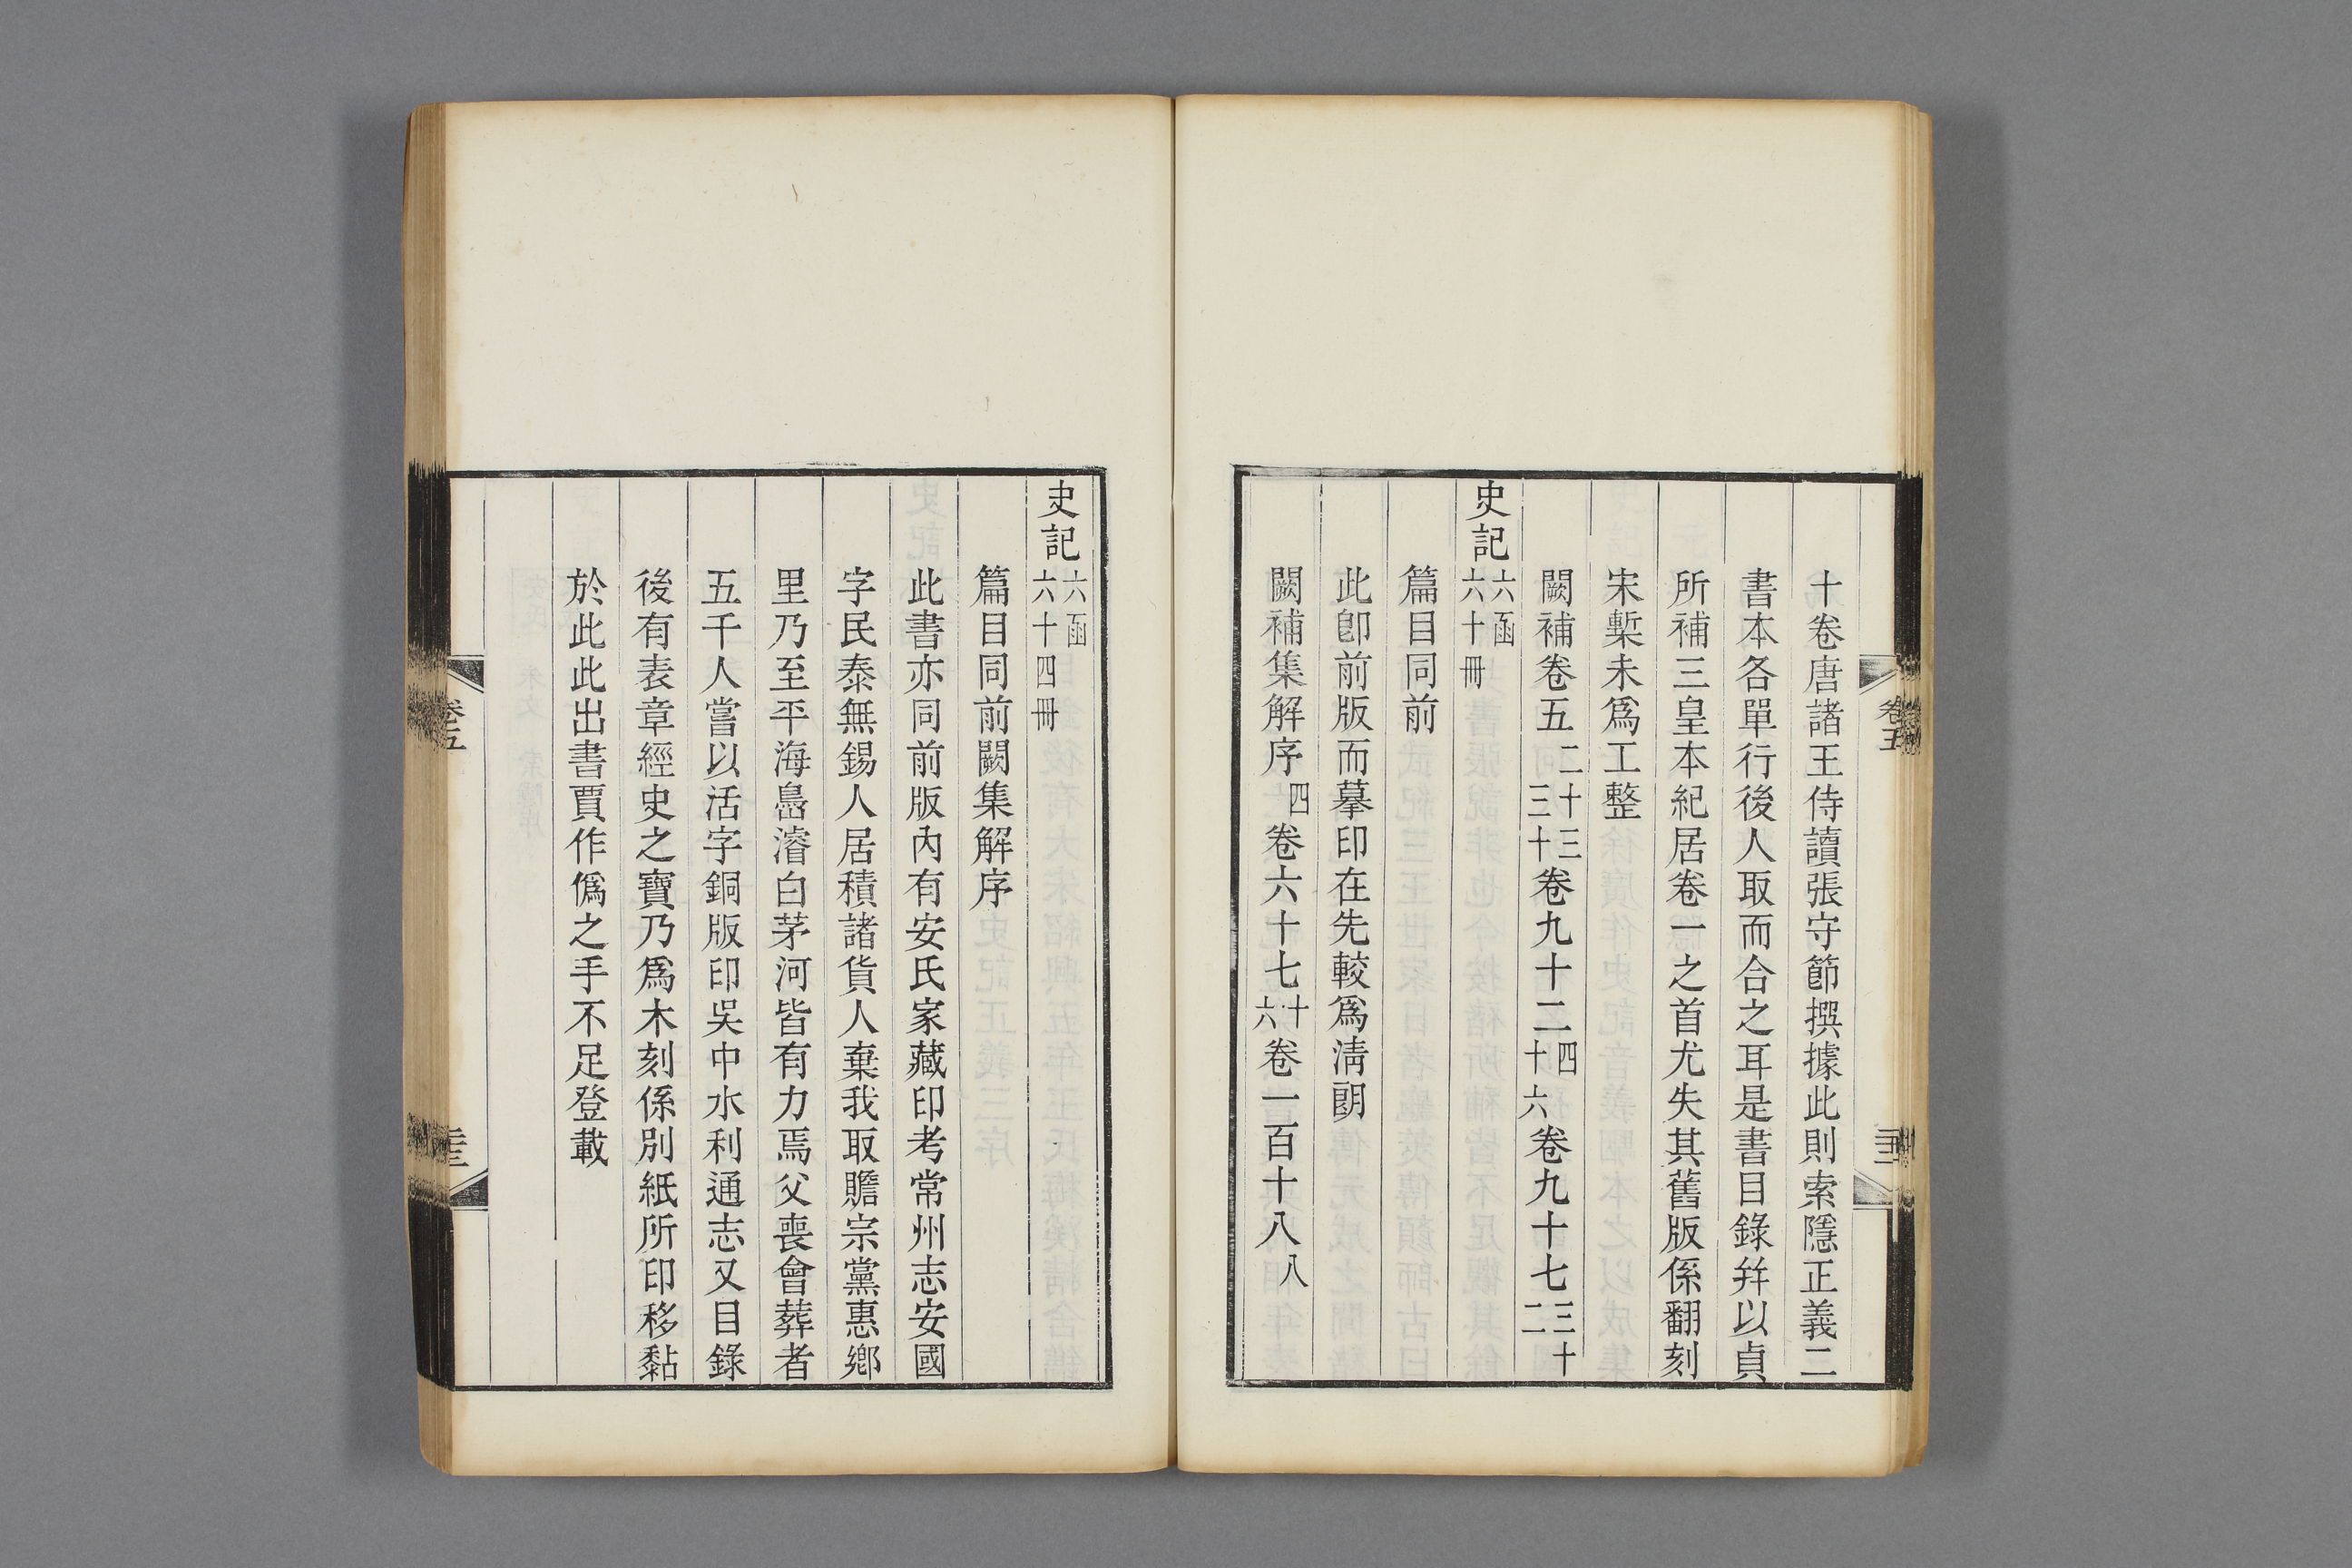 十卷唐諸王侍讀張守節撰據此則索隱正義二
書本各單行後人取而合之耳是書目錄幷以貞
所補三皇本紀居卷一之首尤失其舊版係翻刻
宋槧未爲工整
闕補卷五二十三三十卷九十二四十六卷九十七三十二二
史記六函六十冊
篇目同前
此卽前版而摹印在先較爲淸朗
闕補集解序四卷六十七十六卷一百十八八
史記六函六十四冊
篇目同前闕集解序
此書亦同前版內有安氏家藏印考常州志安國
字民泰無錫人居積諸貨人棄我取贍宗黨惠鄉
里乃至平海島濬白茅河皆有力焉父喪會葬者
五千人嘗以活字銅版印吳中水利通志又目錄
後有表章經史之寶乃爲木刻係別紙所印移黏
於此此出書賈作僞之手不足登載
卷五
卷五